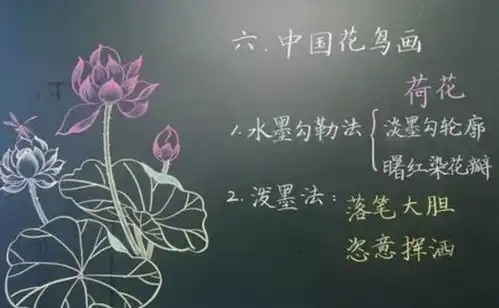 六、中国花鸟画
荷花
1.水墨勾勒法{淡墨勾轮廓
曙红染花瓣
2.泼墨法:落笔大胆
恣意挥洒